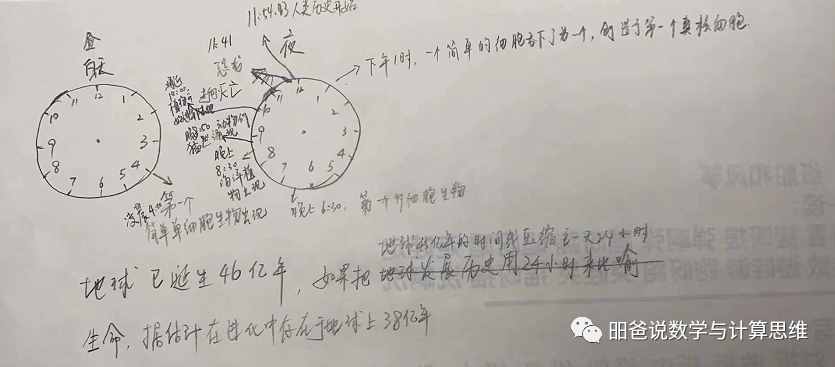 11:54:43 人类历史开始
11:41
恐龙
灭亡
夜
昼
白天
下午1时,一个简单的细胞吞下了另一个,创造了第一个真核细胞
晚上
8:30
海洋植
物出现
12
1
2
3
4
5
6
7
8
9
10
11
12
1
2
3
4
5
6
7
8
9
10
11
凌晨4:00 第一个
简单单细胞生物出现
晚上6:30, 第一个多细胞生物
地球46亿年的时间线压缩在一天24小时
地球已诞生46亿年,如果把地球发展历史用24小时来比喻
生命,据估计在进化中存在于地球上38亿年
昍爸说数学与计算思维